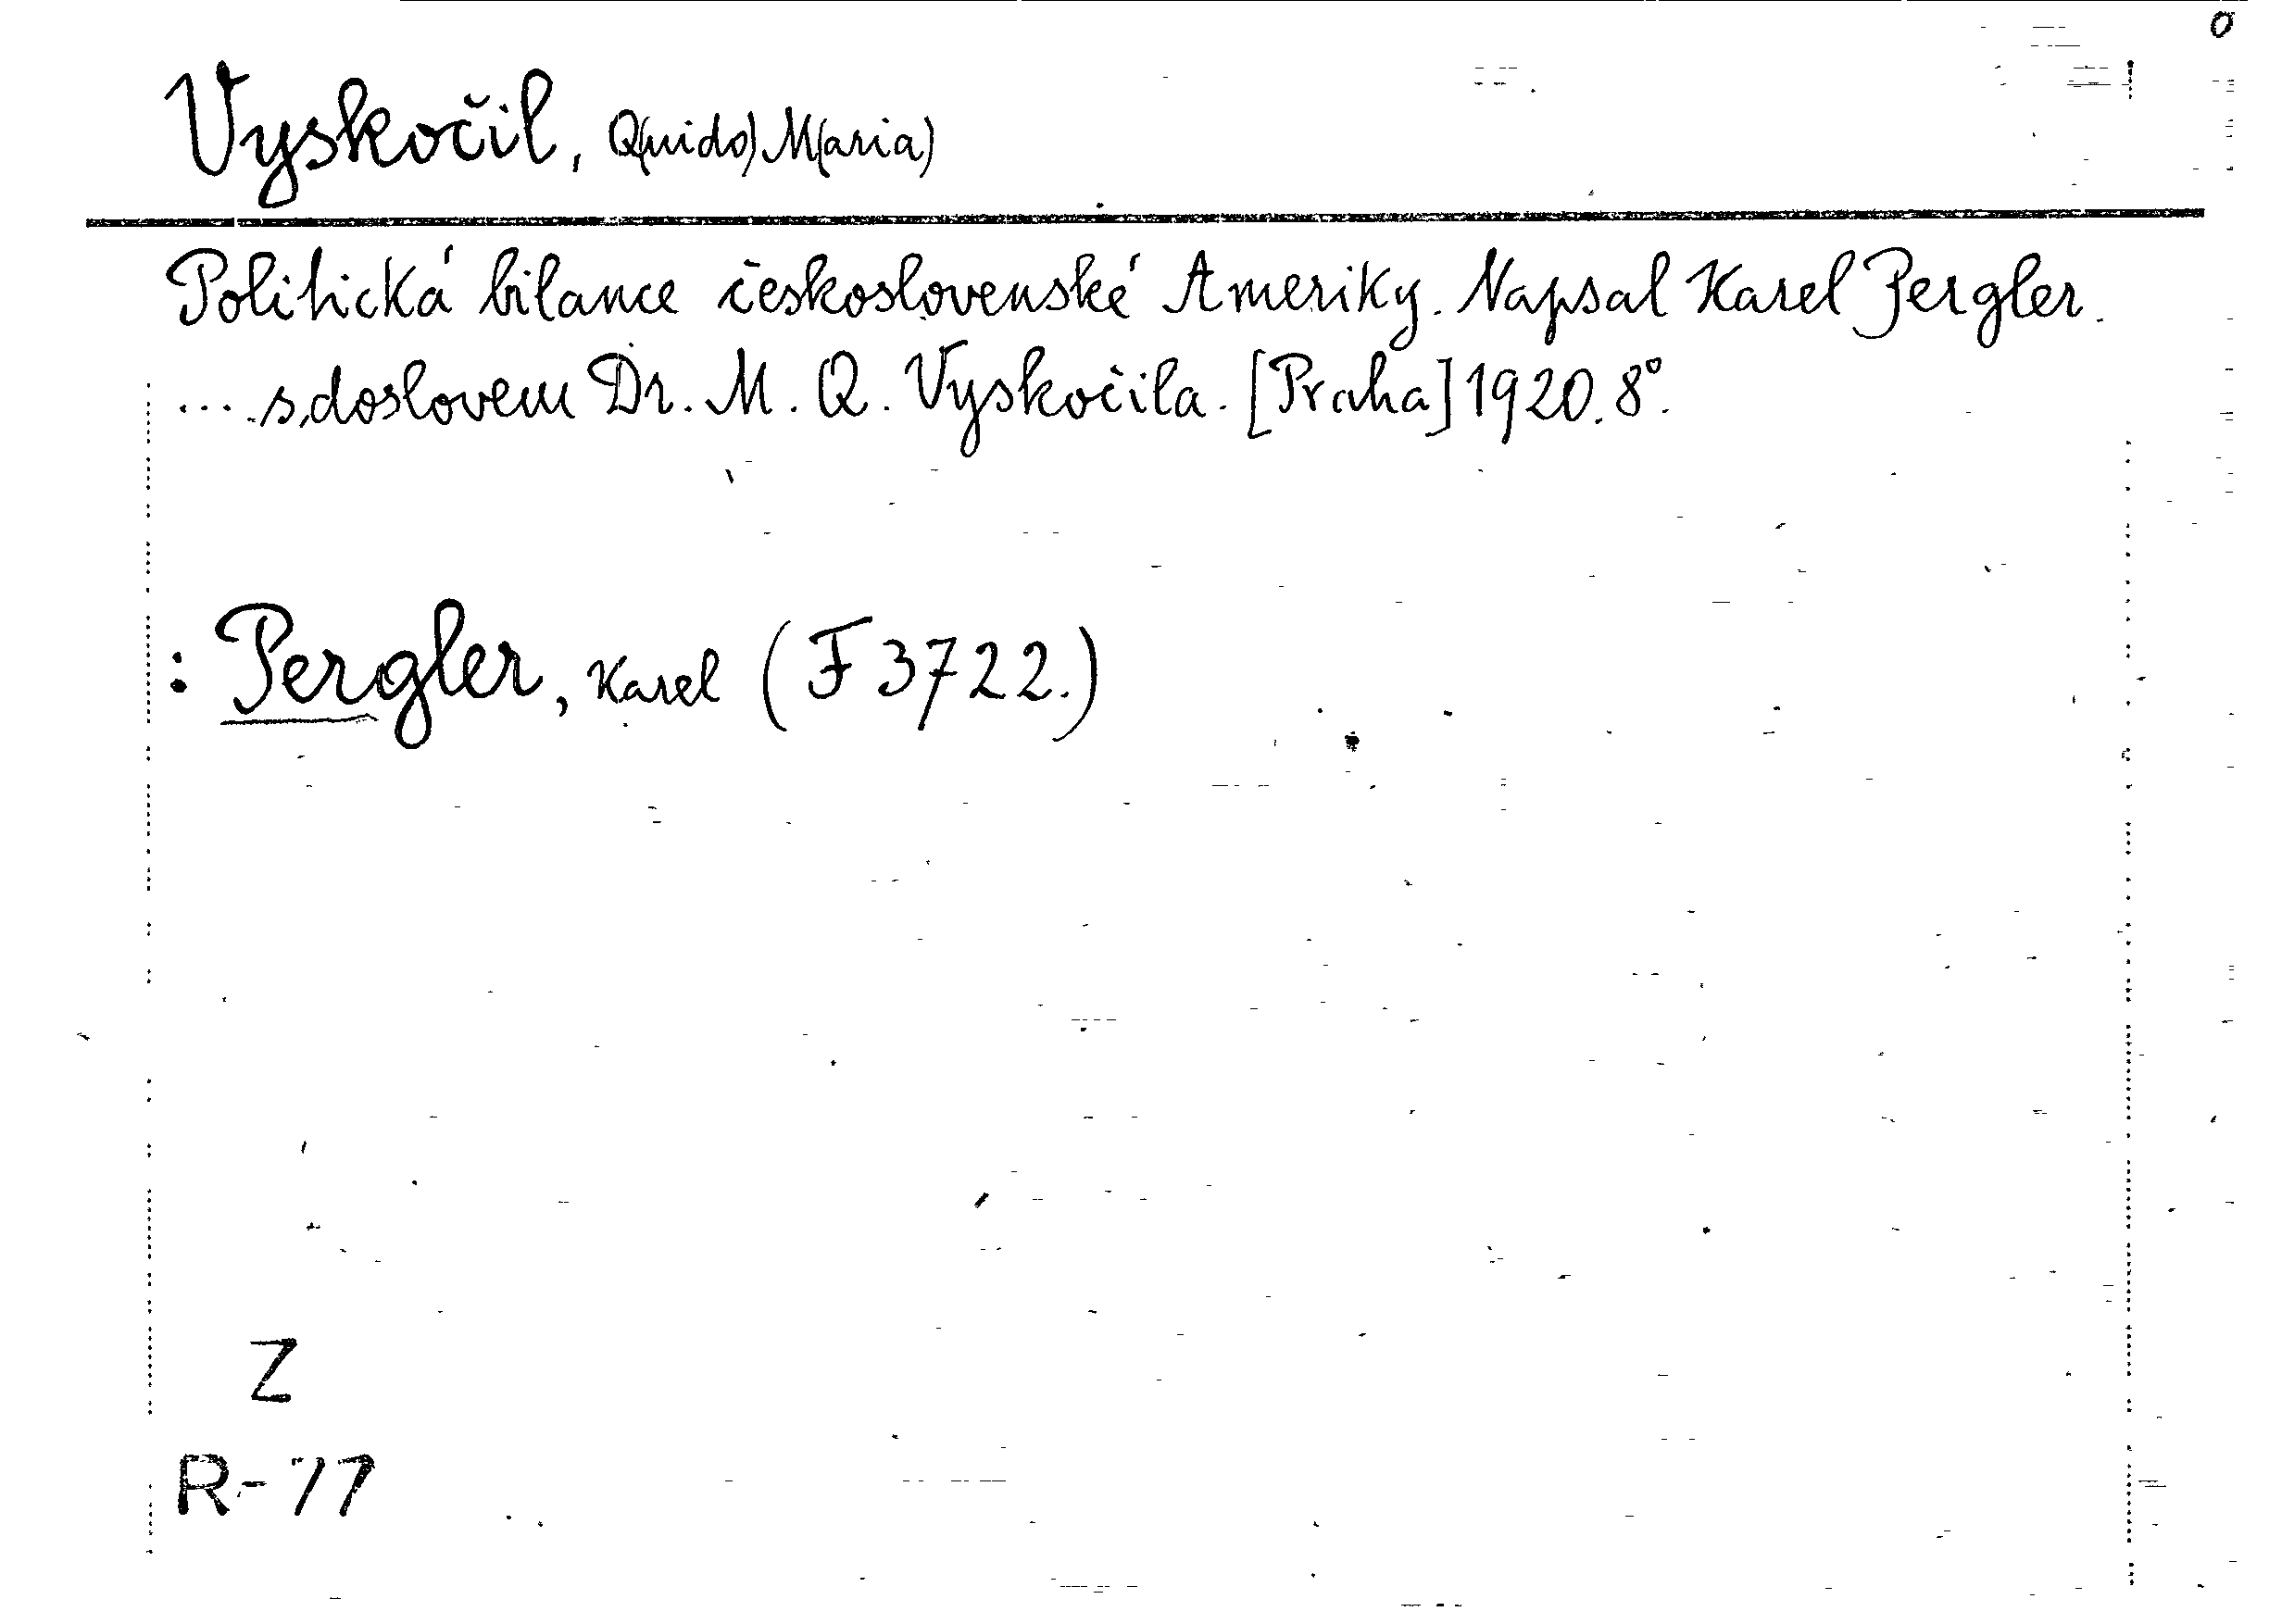 O
Vyskočil, Q(uido) M(aria)
Politická bilance československé Ameriky. Napsal Karel Pergler.
.... s doslovem Dr. M. Q. Vyskočila. [Praha] 1920. 8°.
: Pergler, Karel (F 3722.)
Z
R-77